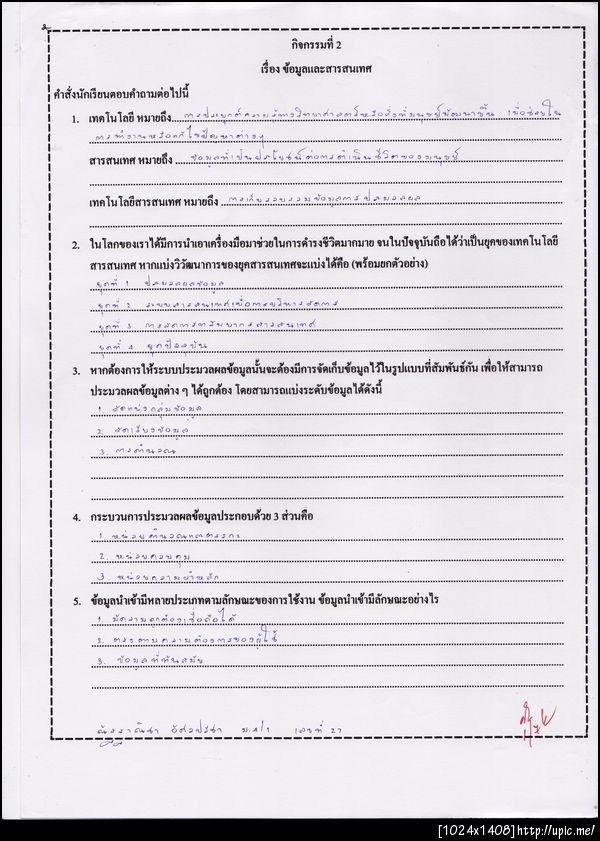 กิจกรรมที่ 2
เรื่อง ข้อมูลและสารสนเทศ
คำสั่งนักเรียนตอบคำถามต่อไปนี้
1. เทคโนโลยี หมายถึง การประยุกต์ความรู้ทางวิทยาศาสตร์หรือสิ่งที่มนุษย์พัฒนาขึ้น เพื่อช่วยใน
การทำงานหรือแก้ไขปัญหาต่างๆ
สารสนเทศ หมายถึง ข้อมูลที่เป็นประโยชน์ต่อการดำเนินชีวิตของมนุษย์
เทคโนโลยีสารสนเทศ หมายถึง การเก็บรวบรวมข้อมูลการประมวลผล
2. ในโลกของเราได้มีการนำเอาเครื่องมือมาช่วยในการดำรงชีวิตมากมาย จนในปัจจุบันถือได้ว่าเป็นยุคของเทคโนโลยี
สารสนเทศ หากแบ่งวิวัฒนาการของยุคสารสนเทศจะแบ่งได้คือ (พร้อมยกตัวอย่าง)
ยุคที่ 1 ประมวลผลข้อมูล
ยุคที่ 2 ระบบสารสนเทศเพื่อการบริหารจัดการ
ยุคที่ 3 การจัดการทรัพยากรสารสนเทศ
ยุคที่ 4 ยุคปัจจุบัน
3. หากต้องการให้ระบบประมวลผลข้อมูลนั้นจะต้องมีการจัดเก็บข้อมูลไว้ในรูปแบบที่สัมพันธ์กัน เพื่อให้สามารถ
ประมวลผลข้อมูลต่าง ๆ ได้ถูกต้อง โดยสามารถแบ่งระดับข้อมูลได้ดังนี้
1. จัดแบ่งกลุ่มข้อมูล
2. จัดเรียงข้อมูล
3. การคำนวณ
4. กระบวนการประมวลผลข้อมูลประกอบด้วย 3 ส่วนคือ
1. หน่วยคำนวณและตรรกะ
2. หน่วยควบคุม
3. หน่วยความจำหลัก
5. ข้อมูลนำเข้ามีหลายประเภทตามลักษณะของการใช้งาน ข้อมูลนำเข้ามีลักษณะอย่างไร
1. มีความถูกต้องเชื่อถือได้
2. ตรงตามความต้องการของผู้ใช้
3. ข้อมูลที่ทันสมัย
ม.4/1 เลขที่ 27
[1024x1408]http://upic.me/